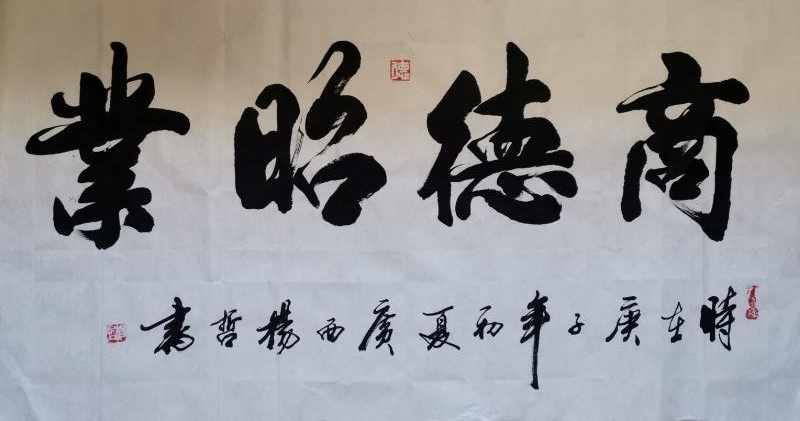 商德昭業
時在庚子年初夏廣西楊哲書